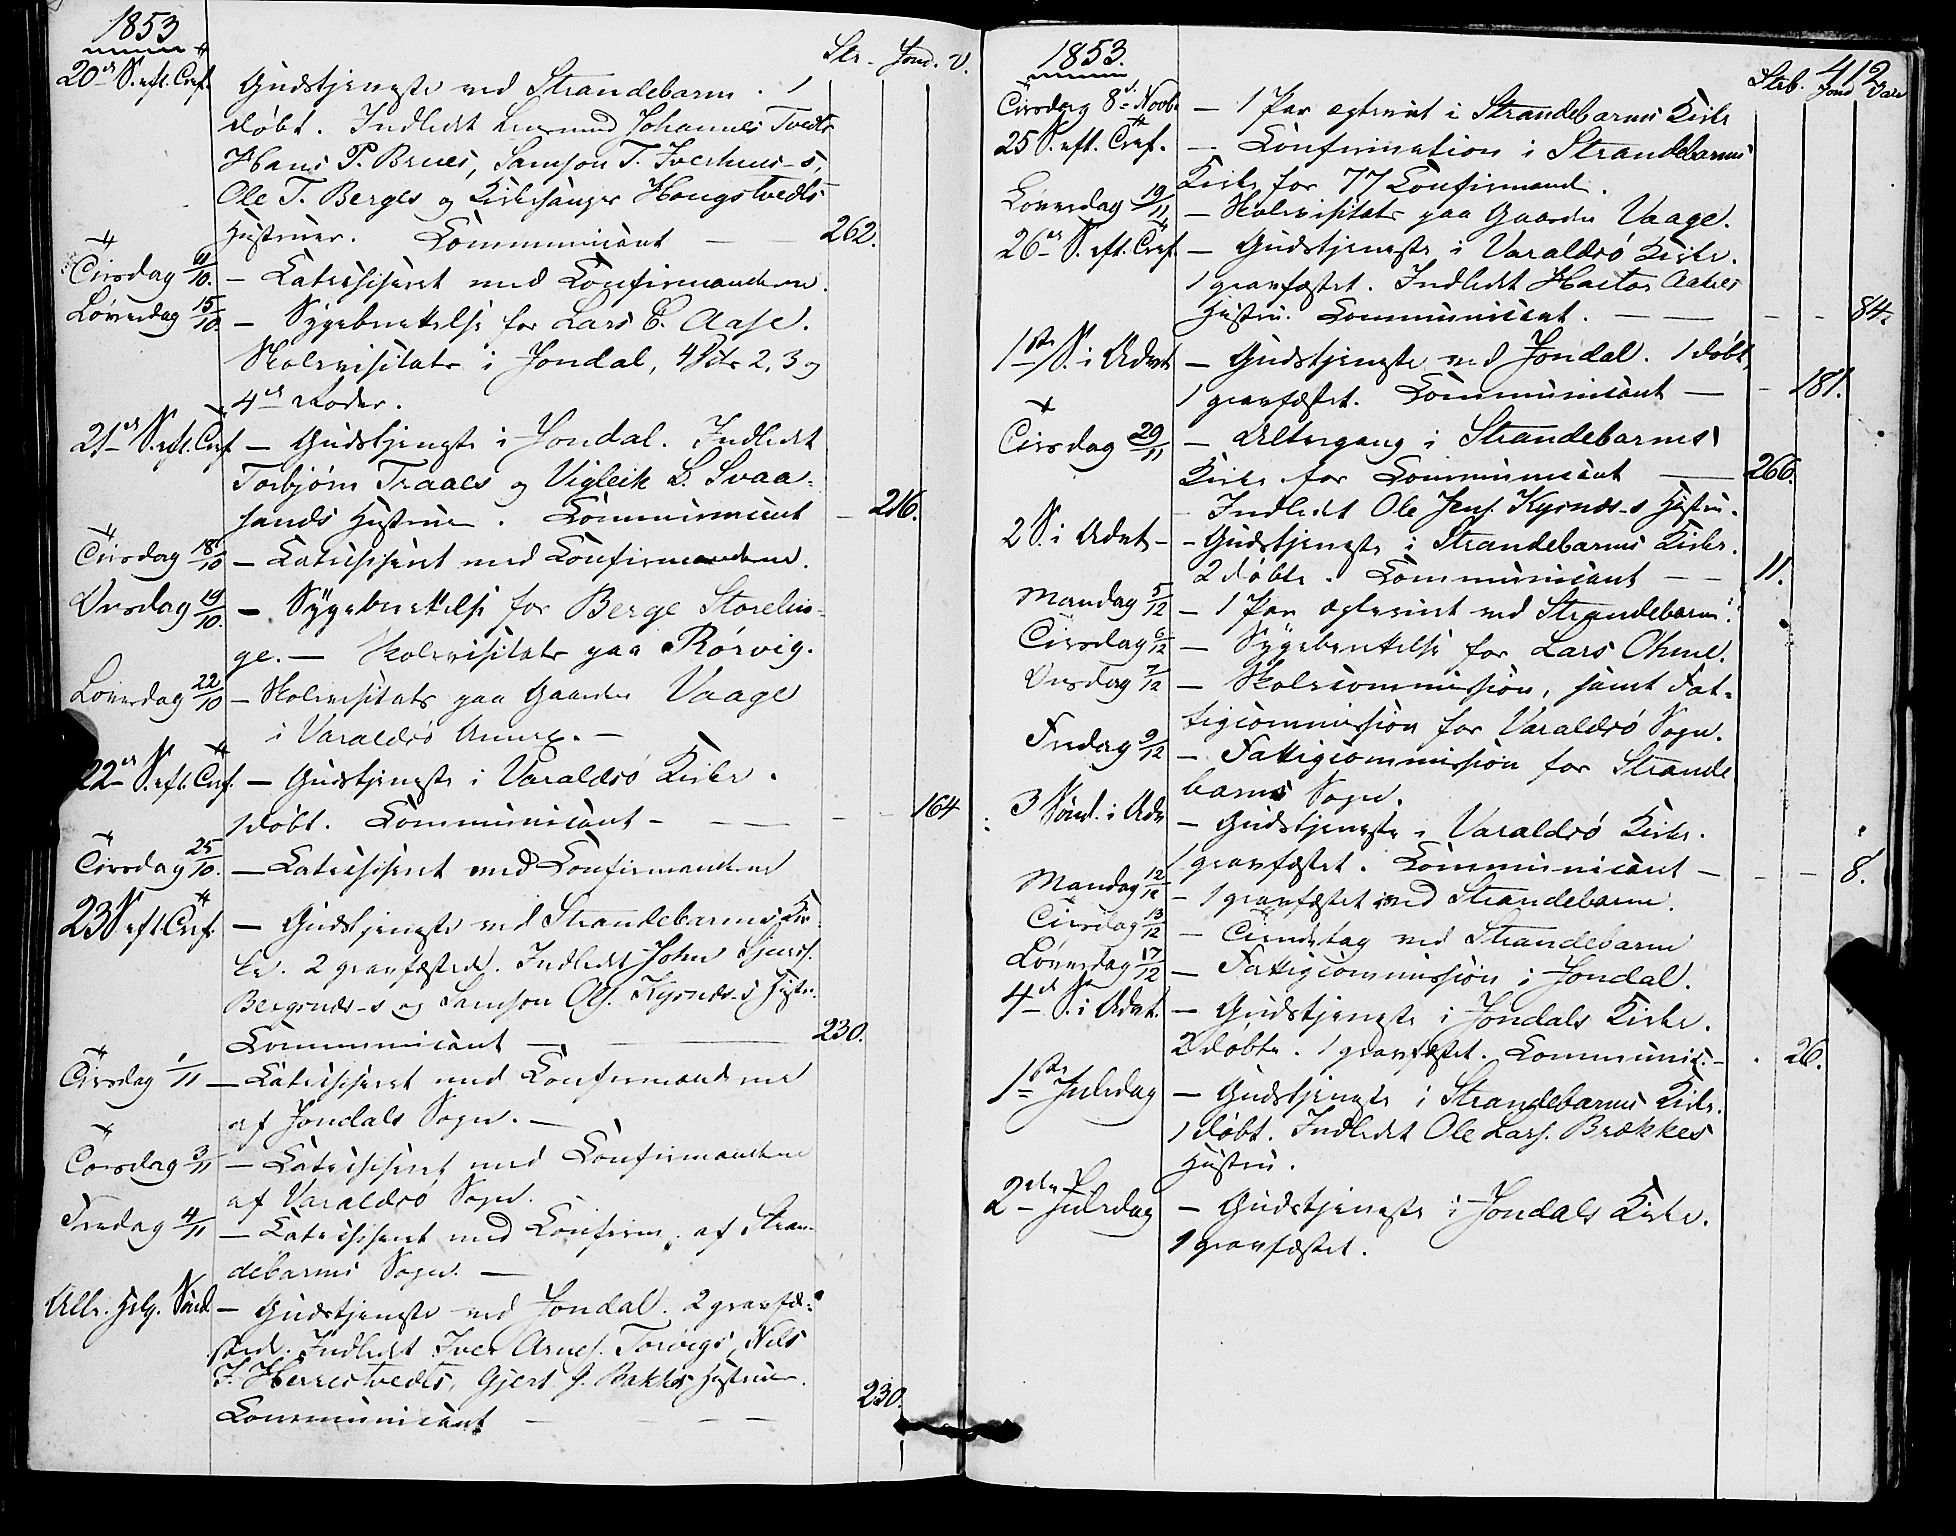 1853
Str. Jond. V.
20de S. eft. Tref. Gudstjeneste ved Strandebarm. 1
døbt. Indledt Lensmand Johannes Tvedts
Hans P. Brues, Samson T. Iverhuus-s,
Ole T. Berges og Kirkesanger Haugstvedts
Hustruer. Communicant — — 262.
Tirsdag 11/10. — Catechiseret med Confirmanderne.
Løverdag 15/10. — Sygeberettelse for Lars C. Aase.
Skolevisitats i Jondal, 4de 2, 3 og
4de Roder.
21de S. eft. Tref — Gudstjeneste i Jondal. Indledt
Torbjørn Traaes og Vigleik L. Svaa-
sands Hustruer. Communicant — 216.
Tirsdag 18/10 — Catechiseret med Confirmanderne.
Onsdag 19/10. — Sygeberettelse for Berge Storelin-
ge. — Skolevisitats paa Rørvig.
Løverdag 22/10 — Skolevisitats paa Gaarden Vaage
i Varaldsø Annex. —
22de S. eft. Tref. — Gudstjeneste i Varaldsø Kirke.
1 døbt. Communicant — — — — 164
Tirsdag 25/10. — Catechiseret med Confirmanderne
23 S eft. Tref. — Gudstjeneste ved Strandebarms Kir-
ke. 2 gravfæstede. Indledt John Sjurs.
Bergsnæs-s og Samson Ols. Kysnæs-s Hustr.
Communicant — — — 230.
Tirsdag 1/11 — Catechiseret med Confirmanderne
af Jondals Sogn. —
Torsdag 3/11 — Catechiseret med Confirmanderne
af Varaldsø Sogn.
Fredag 4/11 — Catechiseret med Confirm. af Stran-
debarms Sogn. —
Alle Helg. Sønd. — Gudstjeneste ved Jondal. 2 gravfæ-
stede. Indledt Iver Arnes. Torvigs, Nils
J. Herrestvedts, Gjert J. Bakkes Hustruer.
Communicant — — — 230.
412
1853.
Strb. Jond Vara
Tirsdag 8de Novbr — 1 Par ægteviet i Strandebarms Kirke
25 S. eft. Tref. — Confirmation i Strandebarms
Kirke for 77 Confirmand.
Løverdag 19/11 — Skolevisitats paa Gaarden Vaage.
26de S. eft. Tref. — Gudstjeneste i Varaldsø Kirke.
1 gravfæstet. Indledt Hactor Aakres
Hustru. Communicant. — — — — 84.
1ste S. i Advt — Gudstjeneste ved Jondal. 1 døbt,
1 gravfæstet. Communicant — — 181.
Tirsdag 29/11 — Altergang i Strandebarms
Kirke for Communicant — 266.
Indledt Ole Jens. Kysnæs-s Hustru.
2 S. i Advt — - Gudstjeneste i Strandebarms Kirke.
2 døbte. Communicant — — 11.
Mandag 5/12 — 1 Par ægteviet ved Strandebarm.
Tirsdag 6/12 — Sygeberettelse for Lars Ohme.
Onsdag 7/12 — Skolecommission, samt Fat-
tigcommission for Varaldsø Sogn.
Fredag 9/12 — Fattigcommission for Strande
barms Sogn.
3 Sønd. i Adv — Gudstjeneste i Varaldsø Kirke.
1 gravfæstet. Communicant — — — 8.
Mandag 12/12 — 1 gravfæstet ved Strandebarm.
Tirsdag 13/12 — Tiendetag ved Strandebarm
Løverdag 17/12 — Fattigcommission i Jondal.
4de S. i Advt. — Gudstjeneste i Jondals Kirke.
2 døbte. 1 gravfæstet. Communic. — 26.
1ste Juledag — Gudstjeneste i Strandebarms Kirke.
1 døbt. Indledt Ole Lars. Brækkes
Hustru.
2den Juledag — Gudstjeneste i Jondals Kirke.
1 gravfæstet.